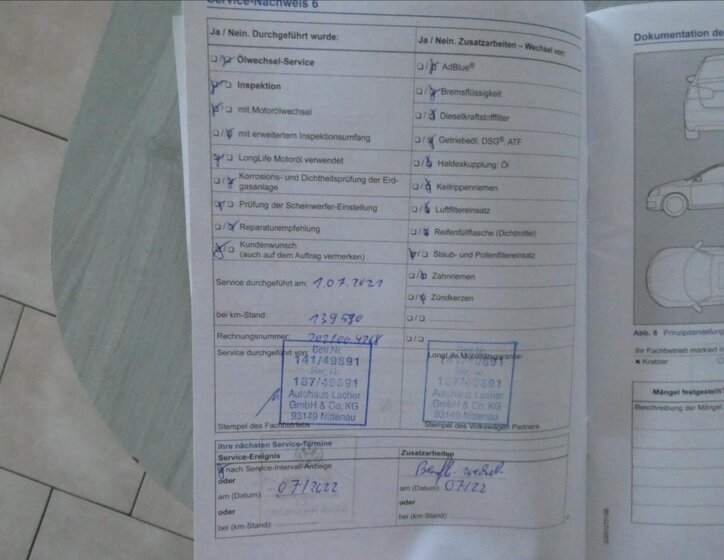 Service-Nachweis 6
Ja / Nein. Durchgeführt wurde:
Ölwechsel-Service
Inspektion
mit Motorölwechsel
mit erweitertem Inspektionsumfang
LongLife Motoröl verwendet
Korrosions- und Dichtheitsprüfung der Erd-
gasanlage
Prüfung der Scheinwerfer-Einstellung
Reparaturempfehlung
Kundenwunsch
(auch auf dem Auftrag vermerken)
Service durchgeführt am: 1.07.2021
bei km-Stand: 139590
Rechnungsnummer:
Service durchgeführt von:
Betr.Nr.
141/49891
Reg.Nr.
187/49891
Autohaus Lacher
GmbH & Co. KG
93149 Nittenau
Stempel des Fachbetriebs
Ja / Nein. Zusatzarbeiten – Wechsel von:
AdBlue®
Bremsflüssigkeit
Dieselkraftstofffilter
Getriebeöl: DSG®, ATF
Haldexkupplung: Öl
Keilrippenriemen
Luftfiltereinsatz
Reifenfüllflasche (Dichtmittel)
Staub- und Pollenfiltereinsatz
Zahnriemen
Zündkerzen
LongLife Mobilitätsgarantie:
Betr.Nr.
Autohaus Lacher
GmbH & Co. KG
93149 Nittenau
Stempel des Volkswagen Partners
Ihre nächsten Service-Termine
Service-Ereignis
nach Service-Intervall-Anzeige
oder
am (Datum): 07/2022
oder
bei (km-Stand):
Zusatzarbeiten
am (Datum): 07/22
oder
bei (km-Stand):
Dokumentation de
Abb. 8 Prinzipdarstellung
Ihr Fachbetrieb markiert
× Kratzer
Mängel festgestellt
Beschreibung der Mängel